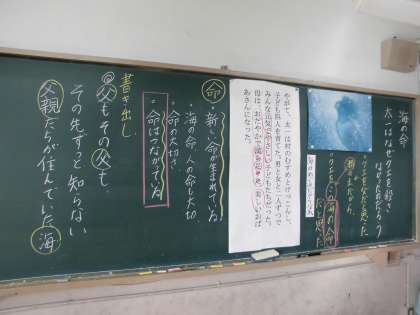 海の命
太一はなぜクエを殺さ
なかったのだろう
クエを父だと思った
海の命
だと思った
やがて、太一は村のむすめとけっこんし、
子どもを四人育てた。男と女と二人ずつで、
みんな元気でやさしい子どもたちだった。
母は、おだやかで満ち足りた、美しいおば
あさんになった。
命
・新しい命が生まれている
・海の命 人の命も大切
・命の大切さ
・命はつながっている
書き出し
父もその父も、
その先ずっと知らない
父親たちが住んでいた海